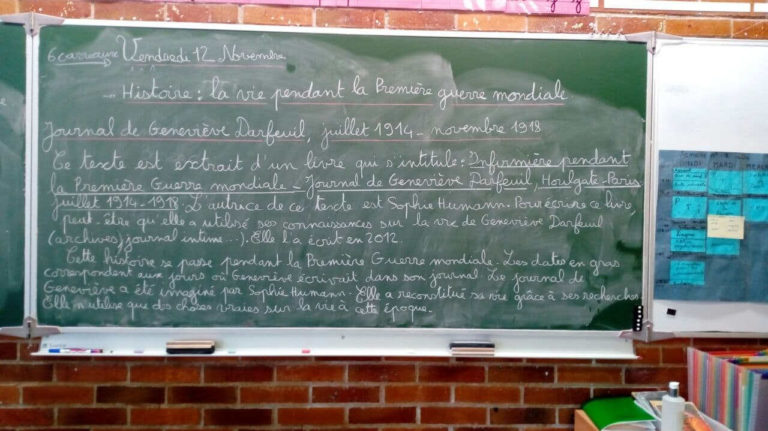 6 carreaux Vendredi 12 Novembre
Histoire : la vie pendant la Première guerre mondiale
Journal de Geneviève Darfeuil, juillet 1914 - novembre 1918
Ce texte est extrait d'un livre qui s'intitule : Infirmière pendant
la Première Guerre mondiale - Journal de Geneviève Darfeuil, Houlgate-Paris
juillet 1914-1918. L'autrice de ce texte est Sophie Humann. Pour écrire ce livre,
peut-être qu'elle a utilisé ses connaissances sur la vie de Geneviève Darfeuil
(archives, journal intime...). Elle l'a écrit en 2012.
Cette histoire se passe pendant la Première Guerre mondiale. Les dates en gras
correspondent aux jours où Geneviève écrivait dans son journal. Le journal de
Geneviève a été imaginé par Sophie Humann. Elle a reconstitué sa vie grâce à ses recherches
Elle n'utilise que des choses vraies sur la vie à cette époque.
LUNDI MARDI